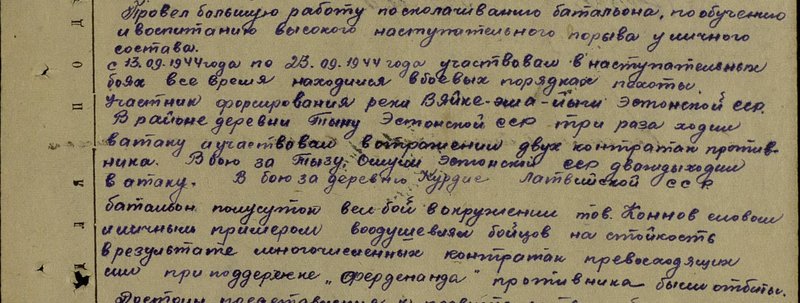 Провел большую работу по сколачиванию батальона, по обучению
и воспитанию высокого наступательного порыва у личного
состава.
с 13.09.1944 года по 23.09.1944 года участвовал в наступательных
боях все время находился в боевых порядках пехоты.
Участник форсирования реки Вяйке-эма-йыги Эстонской сср.
В районе деревни Тыну Эстонской сср три раза ходил
в атаку и участвовал в отражении двух контратак против-
ника. В бою за Тызу, Эстонской сср дважды ходил
в атаку. В бою за деревню Курдис Латвийской сср
батальон полусуток вел бой в окружении тов. Коннов словом
и личным примером воодушевлял бойцов на стойкость
в результате многочисленных контратак превосходящих
сил при поддержке „Ферденанда" противника были отбиты.
Достоин представления к